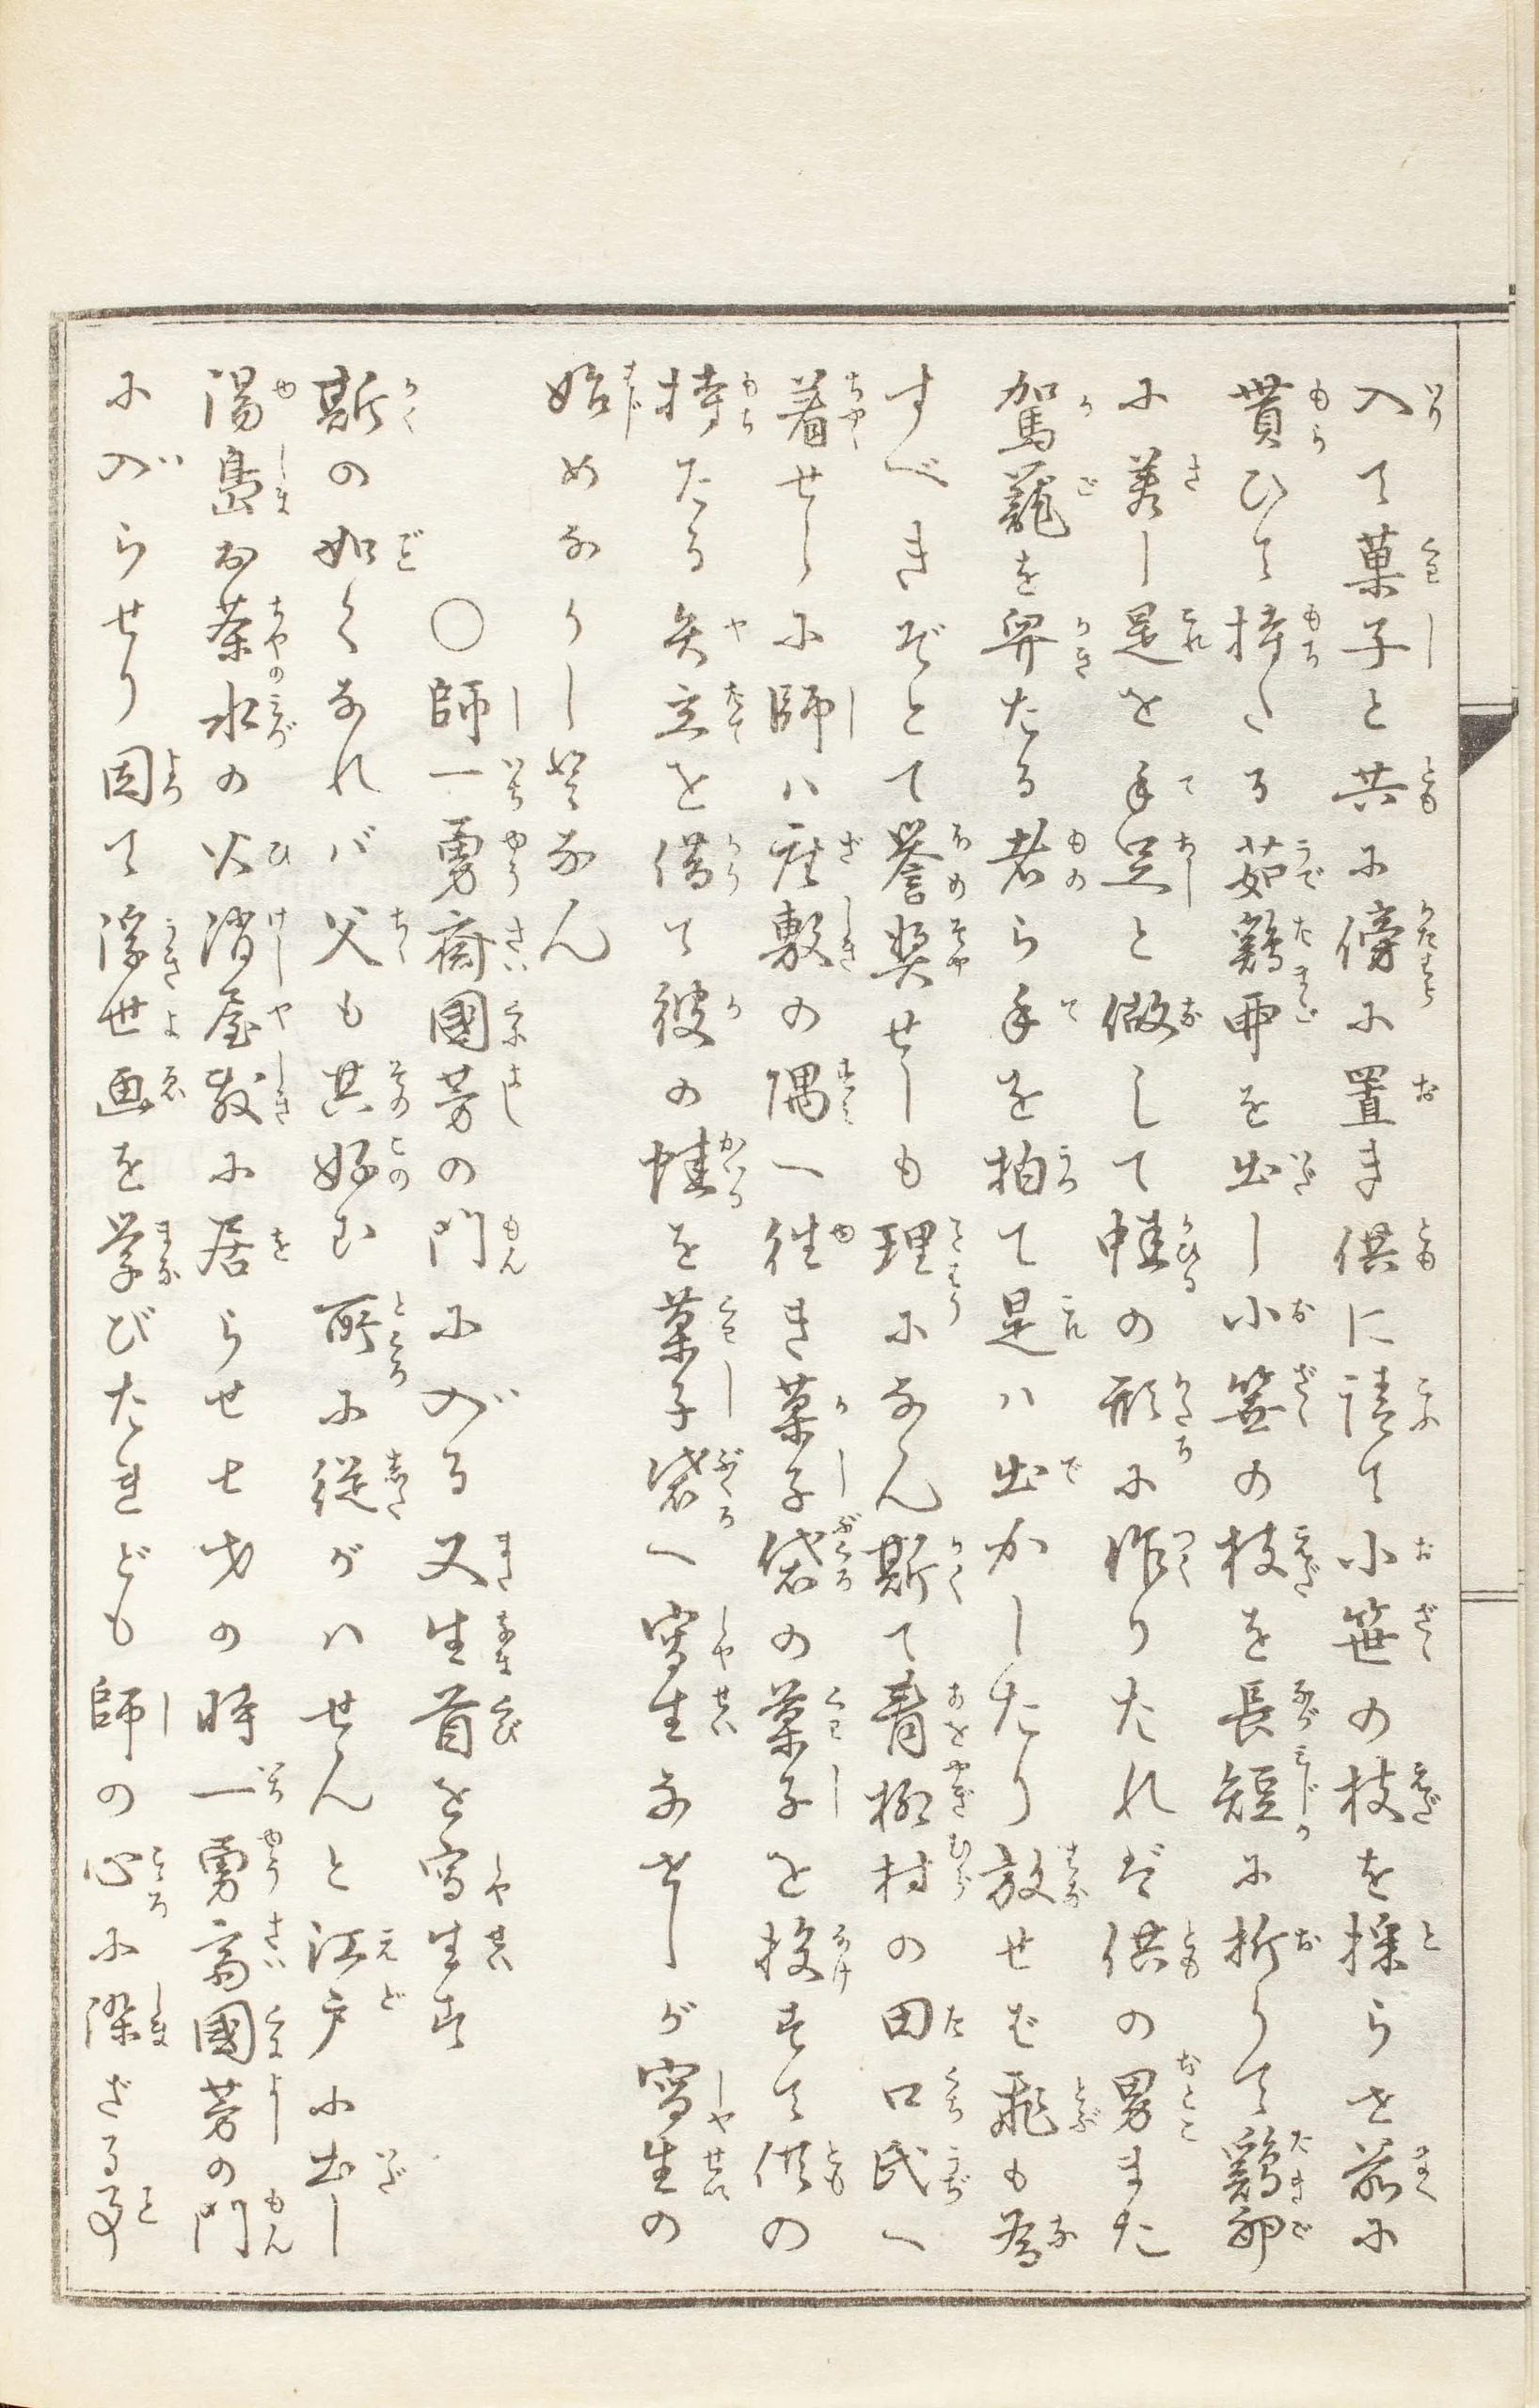 入て菓子と共に傍に置き供に請て小笹の枝を採らせ前に
貰ひて持たる茹鶏卵を出し小笹の枝を長短に折りて鶏卵
に差し是を手足と做して蛙の形に作りたれば供の男また
駕籠を舁たる者ら手を拍て是ハ出かしたり放せば飛も為
すべきぞとて誉奨せしも理になん斯て青柳村の田口氏へ
着せしに師ハ座敷の隅へ往き菓子袋の菓子を投すて供の
持たる矢立を借て彼の蛙を菓子袋へ写生なせしが写生の
始めなりしとなん
○師一勇斎國芳の門に入る又生首を写生す
斯の如くなれバ父も其好む所に従がハせんと江戸に出し
湯島お茶水の火消屋敷に居らせ七才の時一勇斎國芳の門
に入らせり因て浮世画を学びたれども師の心に染ざる事